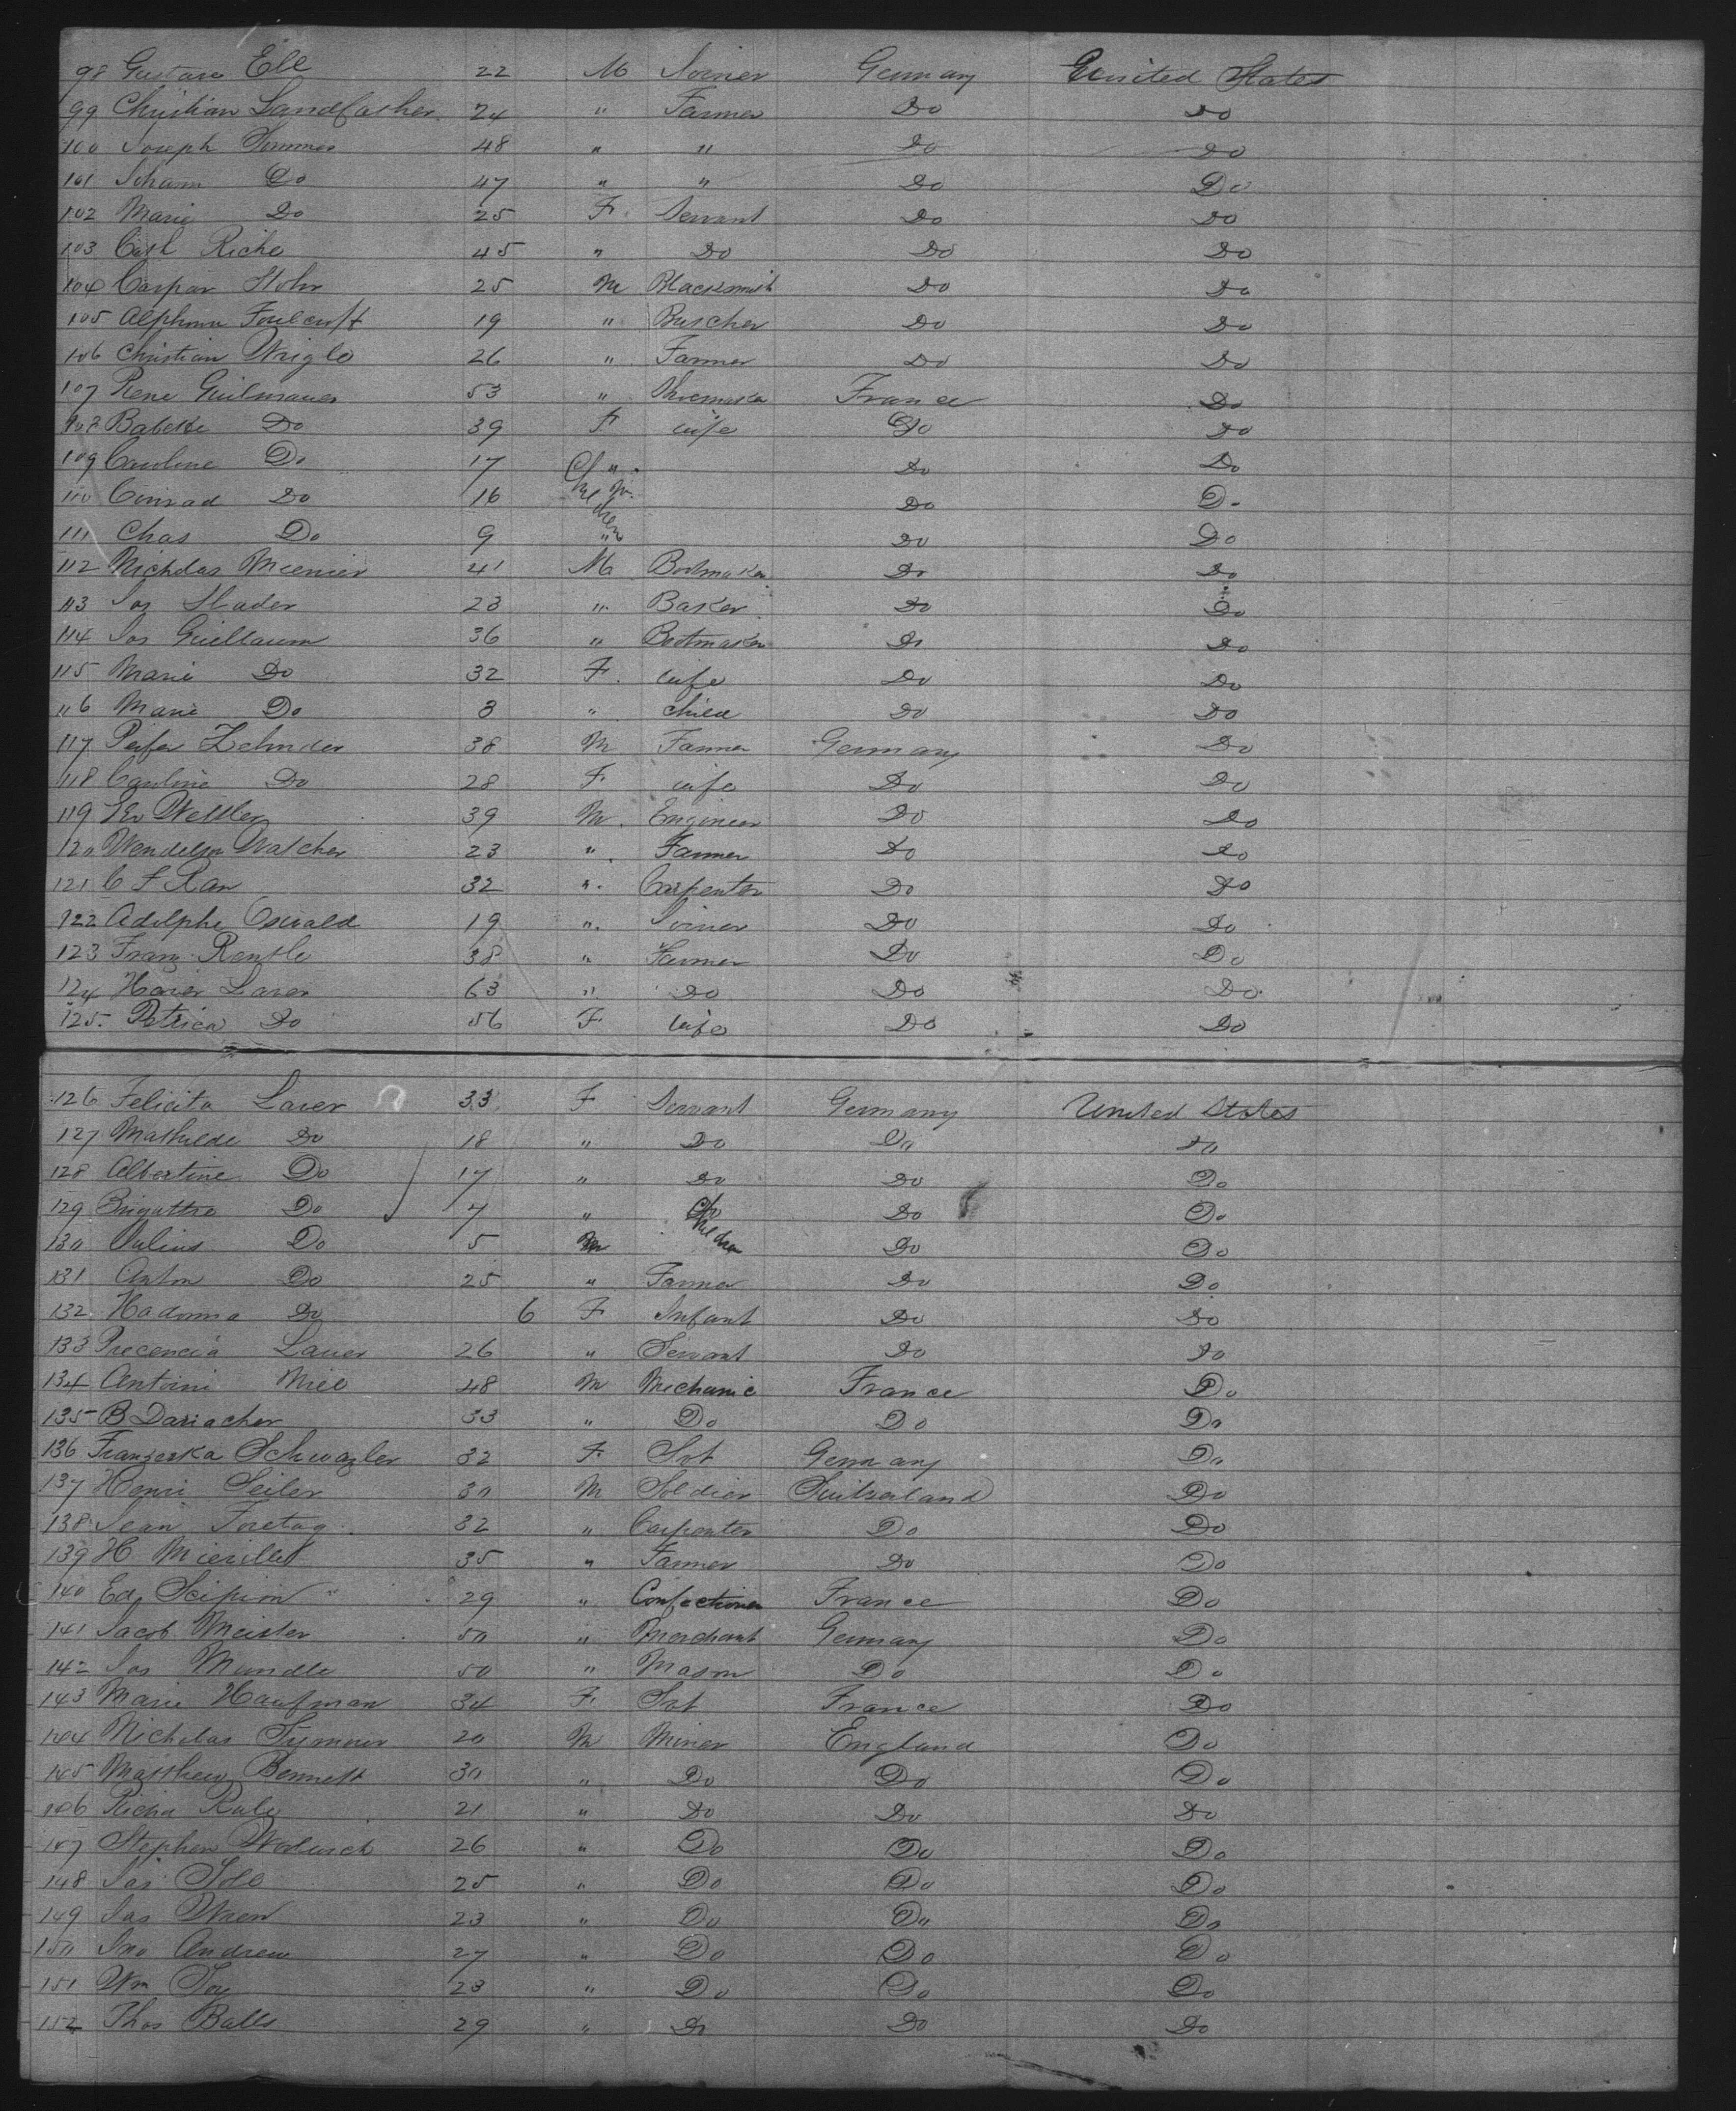 98 Gustave Ell 22 M Joiner Germany United States
99 Christian Landfather 24 " Farmer Do Do
100 Joseph Sommer 48 " " Do Do
101 Johann Do 47 " " Do Do
102 Marie Do 25 F Servant Do Do
103 Cath Riche 45 " Do Do Do
104 Caspar Stohr 25 M Blacksmith Do Do
105 Alphonse 19 " Butcher Do Do
106 Christian 26 " Farmer Do Do
107 Rene 53 " Shoemaker France Do
108 Babette Do 39 F wife Do Do
109 Caroline Do 17 " Do Do
110 Conrad Do 16 M Children Do Do
111 Chas Do 9 " Do Do
112 Nicholas Meunier 41 M Bootmaker Do Do
113 Jos Stader 23 " Baker Do Do
114 Jos Guillaum 36 " Bootmaker Do Do
115 Marie Do 32 F. wife Do Do
116 Marie Do 3 " child Do Do
117 Zehnder 38 M Farmer Germany Do
118 Caroline Do 28 F wife Do Do
119 Wettler 39 M. Engineer Do Do
120 Watcher 23 " Farmer Do Do
121 C F Rau 32 " Carpenter Do Do
122 Adolphe Oswald 19 " Joiner Do Do
123 Franz Rentle 38 " Farmer Do Do
124 Laver 63 " Do Do Do
125. Do 56 F wife Do Do
126 Felicita Laver 33 F Servant Germany United States
127 Mathilde Do 18 " Do Do Do
128 Albertine Do 17 " Do Do Do
129 Do 7 " Children Do Do
130 Julius Do 5 M Do Do
131 Anton Do 25 " Farmer Do Do
132. Hadonna Do 6 F Infant Do Do
133 Laver 26 " Servant Do Do
134 Antoini 48 M Mechanic France Do
135 B Dariacher 33 " Do Do Do
136 Franzeska Schwazler 32 F Svt Germany Do
137 Henri Seiler 30 M Soldier Switzerland Do
138 Jean Foretag 32 " Carpenter Do Do
139 H 35 " Farmer Do Do
140 Ed Scipion 29 " Confectioner France Do
141 Jacob Meister 50 " Merchant Germany Do
142 Jos Mundle 50 " Mason Do Do
143 Marie Haufman 34 F. Svt France Do
144 Nicholas 20 M Miner England Do
145 Matthew Bennett 30 " Do Do Do
146 Richd 21 " Do Do Do
147 Stephen 26 " Do Do Do
148 Jas 25 " Do Do Do
149 Jas 23 " Do Do Do
150 Jno Andrew 27 " Do Do Do
151 Wm 23 " Do Do Do
152 Thos Balls 29 " Do Do Do